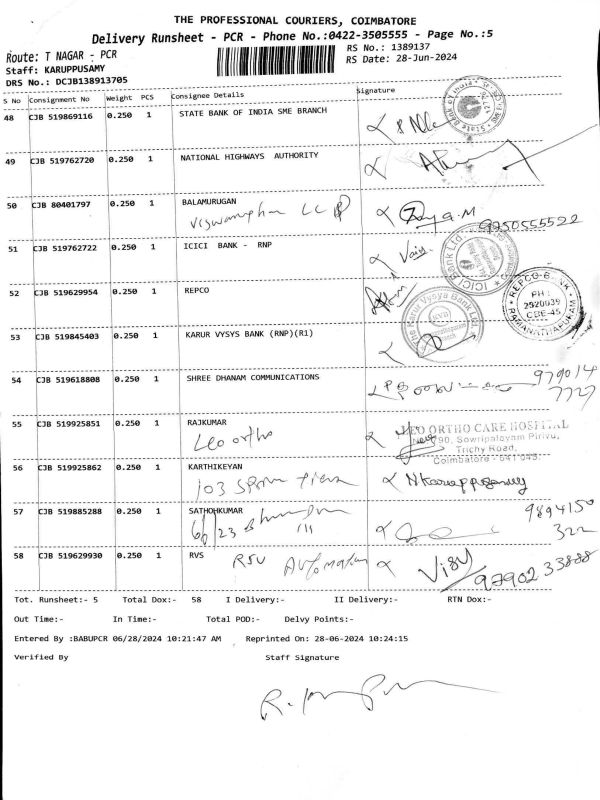 THE PROFESSIONAL COURIERS, COIMBATORE
Delivery Runsheet - PCR - Phone No.:0422-3505555 - Page No.:5
Route: T NAGAR - PCR
RS No.: 1389137
Staff: KARUPPUSAMY
RS Date: 28-Jun-2024
DRS No.: DCJB138913705
S No Consignment No Weight PCS Consignee Details Signature
48 CJB 519869116 0.250 1 STATE BANK OF INDIA SME BRANCH
49 CJB 519762720 0.250 1 NATIONAL HIGHWAYS AUTHORITY
50 CJB 80401797 0.250 1 BALAMURUGAN
9750555522
51 CJB 519762722 0.250 1 ICICI BANK - RNP
52 CJB 519629954 0.250 1 REPCO
REPCO BANK
PH:
2520039
CBE-45
RAMANATHAPURAM
53 CJB 519845403 0.250 1 KARUR VYSYS BANK (RNP)(R1)
The Karur Vysya Bank Ltd.
KVB
54 CJB 519618808 0.250 1 SHREE DHANAM COMMUNICATIONS
979014
7727
55 CJB 519925851 0.250 1 RAJKUMAR
Leo ortho
LEO ORTHO CARE HOSPITAL
90, Sowripalayam Pirivu,
Trichy Road,
Coimbatore - 641 045.
56 CJB 519925862 0.250 1 KARTHIKEYAN
103
57 CJB 519885288 0.250 1 SATHOHKUMAR
9894150
322
58 CJB 519629930 0.250 1 RVS
Vijay
97902 33888
Tot. Runsheet:- 5 Total Dox:- 58 I Delivery:- II Delivery:- RTN Dox:-
Out Time:- In Time:- Total POD:- Delvy Points:-
Entered By :BABUPCR 06/28/2024 10:21:47 AM Reprinted On: 28-06-2024 10:24:15
Verified By Staff Signature